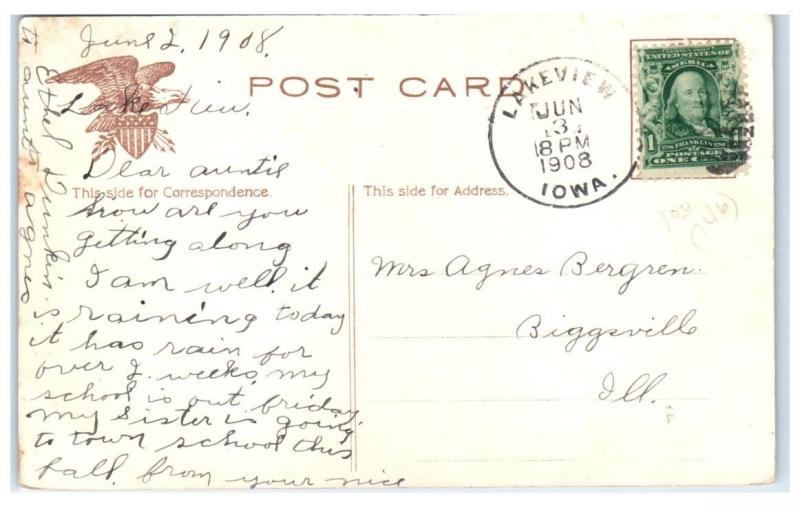 June 2, 1908.
Lake View.
POST CARD
LAKEVIEW
JUN
3
8 PM
1908
IOWA.
SERIES 1902
UNITED STATES OF
AMERICA
1
FRANKLIN
POSTAGE
ONE CENT
This side for Correspondence.
This side for Address.
Dear auntie
how are you
getting along
I am well. it
is raining today
it has rain for
over 2 weeks, my
school is out friday
my sister is going
to town school this
fall. from your nice
Ethel Dunkin
to aunt agnes
Mrs Agnes Bergren.
Biggsville
Ill.